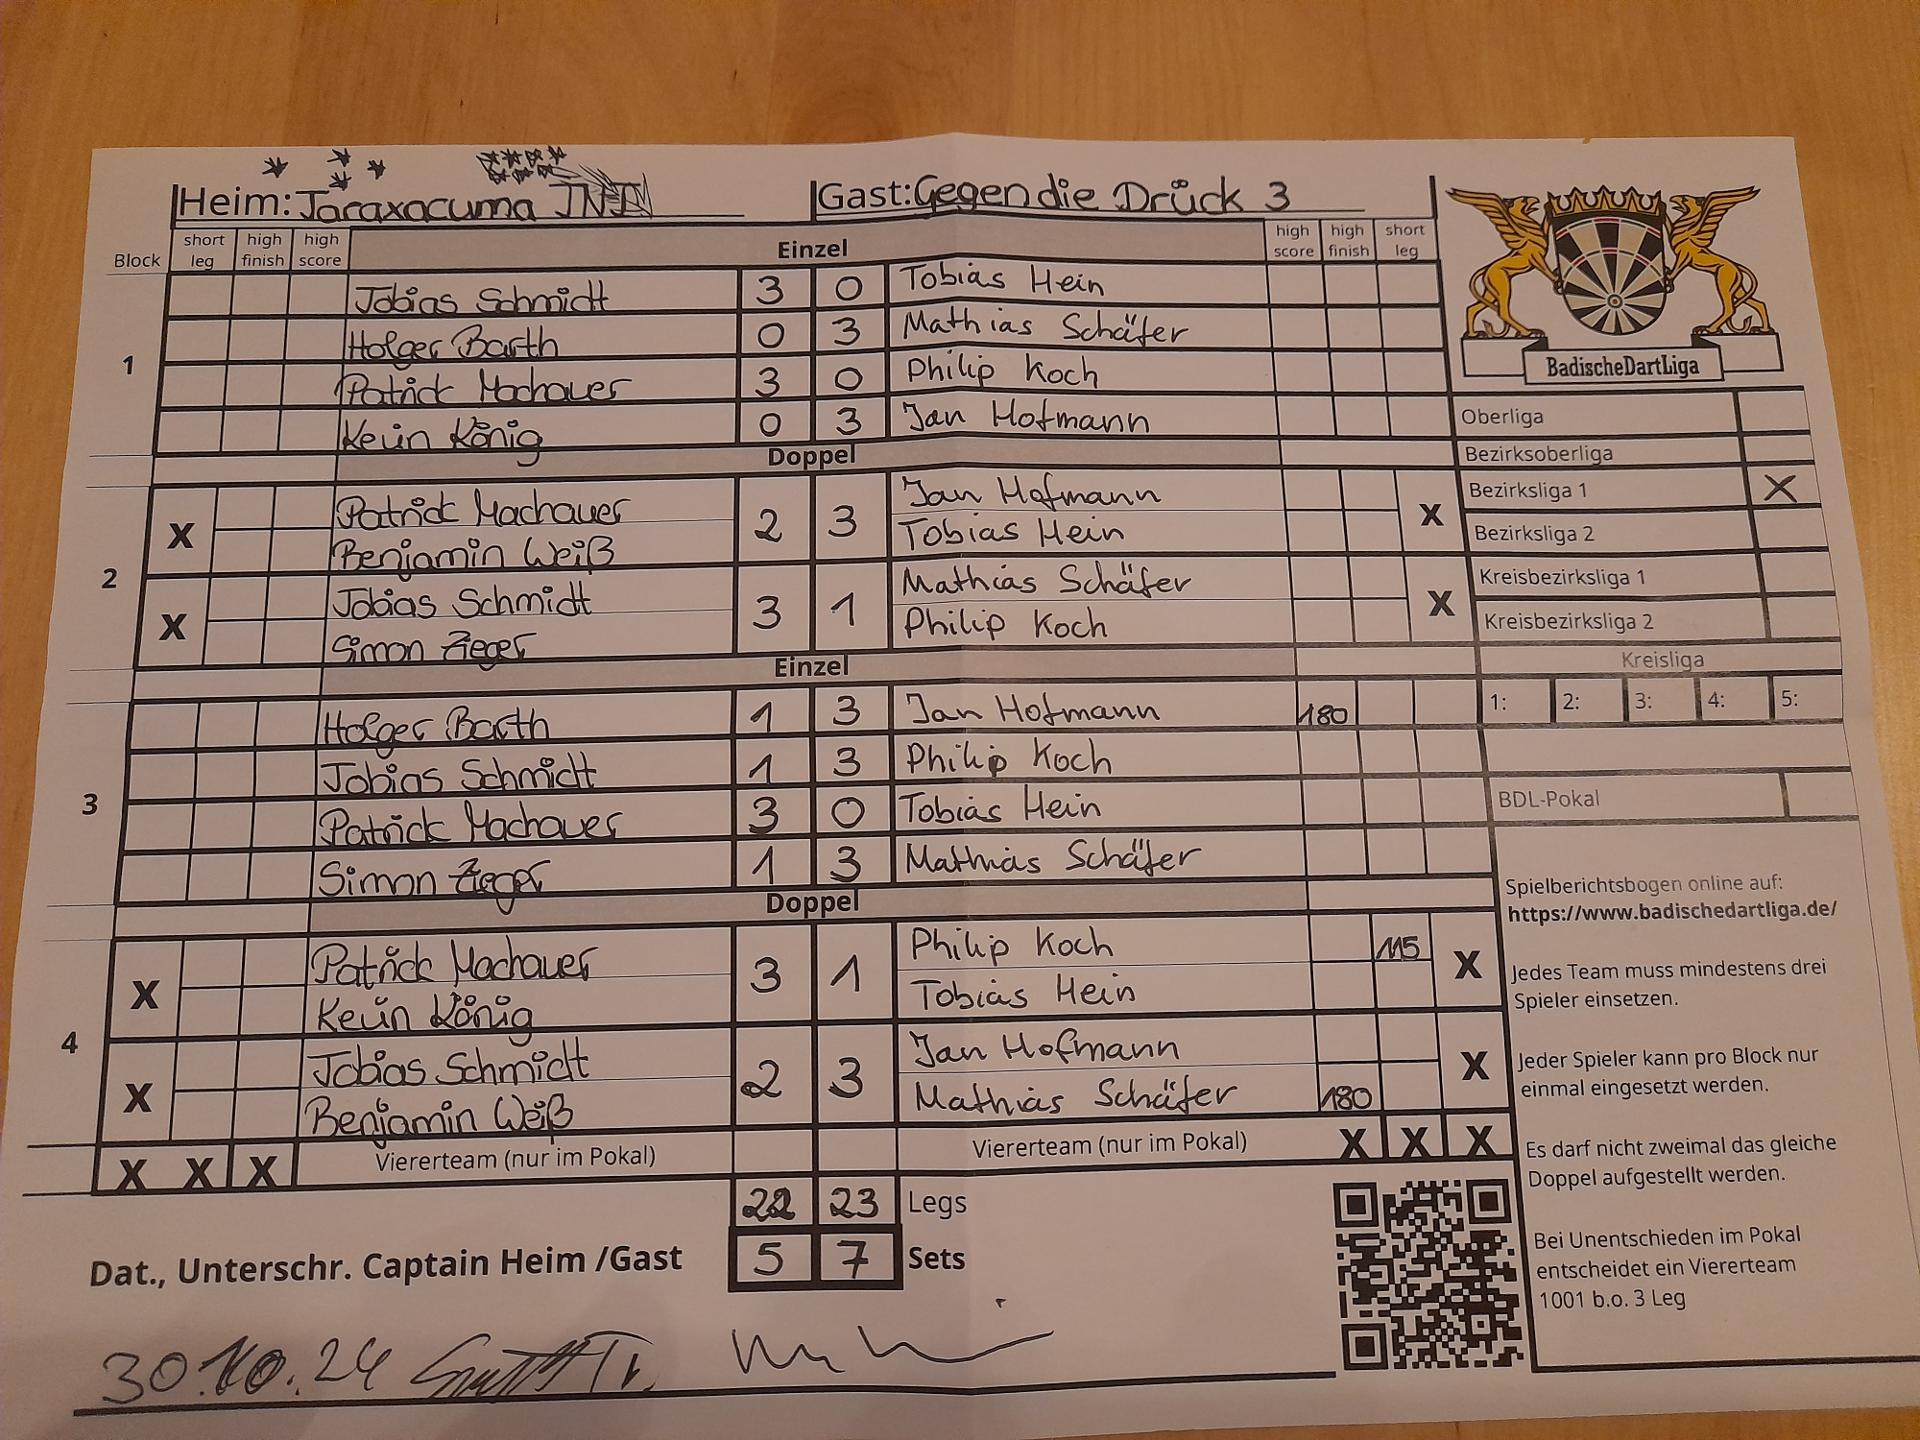 Heim: Taraxacuma
Gast: Gegen die Drück 3
Block short leg high finish high score Einzel high score high finish short leg
1
Tobias Schmidt 3 0 Tobias Hein
Holger Barth 0 3 Mathias Schäfer
Patrick Machauer 3 0 Philip Koch
Kevin König 0 3 Jan Hofmann
Doppel
2
X Patrick Machauer 2 3 Jan Hofmann X
Benjamin Weiß Tobias Hein
X Tobias Schmidt 3 1 Mathias Schäfer X
Simon Zieger Philip Koch
Einzel
3
Holger Barth 1 3 Jan Hofmann 180
Tobias Schmidt 1 3 Philip Koch
Patrick Machauer 3 0 Tobias Hein
Simon Zieger 1 3 Mathias Schäfer
Doppel
4
X Patrick Machauer 3 1 Philip Koch 115 X
Kevin König Tobias Hein
X Tobias Schmidt 2 3 Jan Hofmann X
Benjamin Weiß Mathias Schäfer 180
X X X Viererteam (nur im Pokal) Viererteam (nur im Pokal) X X X
22 23 Legs
Dat., Unterschr. Captain Heim /Gast 5 7 Sets
30.10.24
BadischeDartLiga
Oberliga
Bezirksoberliga
Bezirksliga 1 X
Bezirksliga 2
Kreisbezirksliga 1
Kreisbezirksliga 2
Kreisliga
1: 2: 3: 4: 5:
BDL-Pokal
Spielberichtsbogen online auf:
https://www.badischedartliga.de/
Jedes Team muss mindestens drei
Spieler einsetzen.
Jeder Spieler kann pro Block nur
einmal eingesetzt werden.
Es darf nicht zweimal das gleiche
Doppel aufgestellt werden.
Bei Unentschieden im Pokal
entscheidet ein Viererteam
1001 b.o. 3 Leg